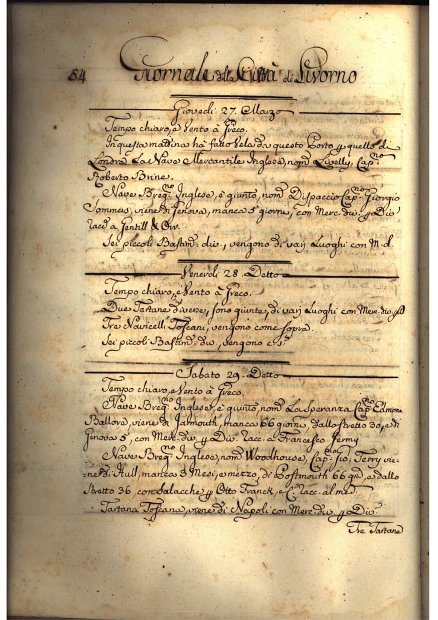 54 Giornale della Città di Livorno
Giovedi 27. Marzo
Tempo chiaro, e Vento à Greco.
In questa mattina hà fatto Vela da questo Porto p quello di
Londra La Nave Mercantile Inglese, nom.ta Livelly, Cap.no
Roberto Brine.
Nave Breg.no Inglese, è giunto, nom.to Dispaccio Cap.no Giorgio
Sommers, viene di Genova, manca 5 giorni, con Merc: div: p Div:
racc: a Gentill & Orr.
Sei piccoli Bastim: div:, vengono di varj Luoghi con M: d:
Venerdi 28. Detto
Tempo chiaro, e Vento à Greco.
Due Tartane diverse, sono giunte, di varj Luoghi con Merc: div:
Tre Navicelli Toscani, vengono come sopra.
Sei piccoli Bastim: div: vengono c: s:
Sabato 29. Detto
Tempo chiaro, e Vento à Greco.
Nave Breg.no Inglese, è giunto, nom.to La Speranza Cap.no Edmond
Ballora, viene di Jalmouth, manca 66 giorni, dallo Stretto 30, e di
Genova 5, con Merc: div: p Div: racc: a Francesco Jermy
Nave Breg.no Inglese, nom.to Woodhouse, Cap.no Gio: Terry vie-
ne di Hull, manca 3 Mesi, e mezzo, di Postmouth 66 gni, e dallo
Stretto 36, con Salacche p Otto Franck, e C: racc: al med.
Tartana Toscana, viene di Napoli con Merc: div: p Div:
Tre Tartane